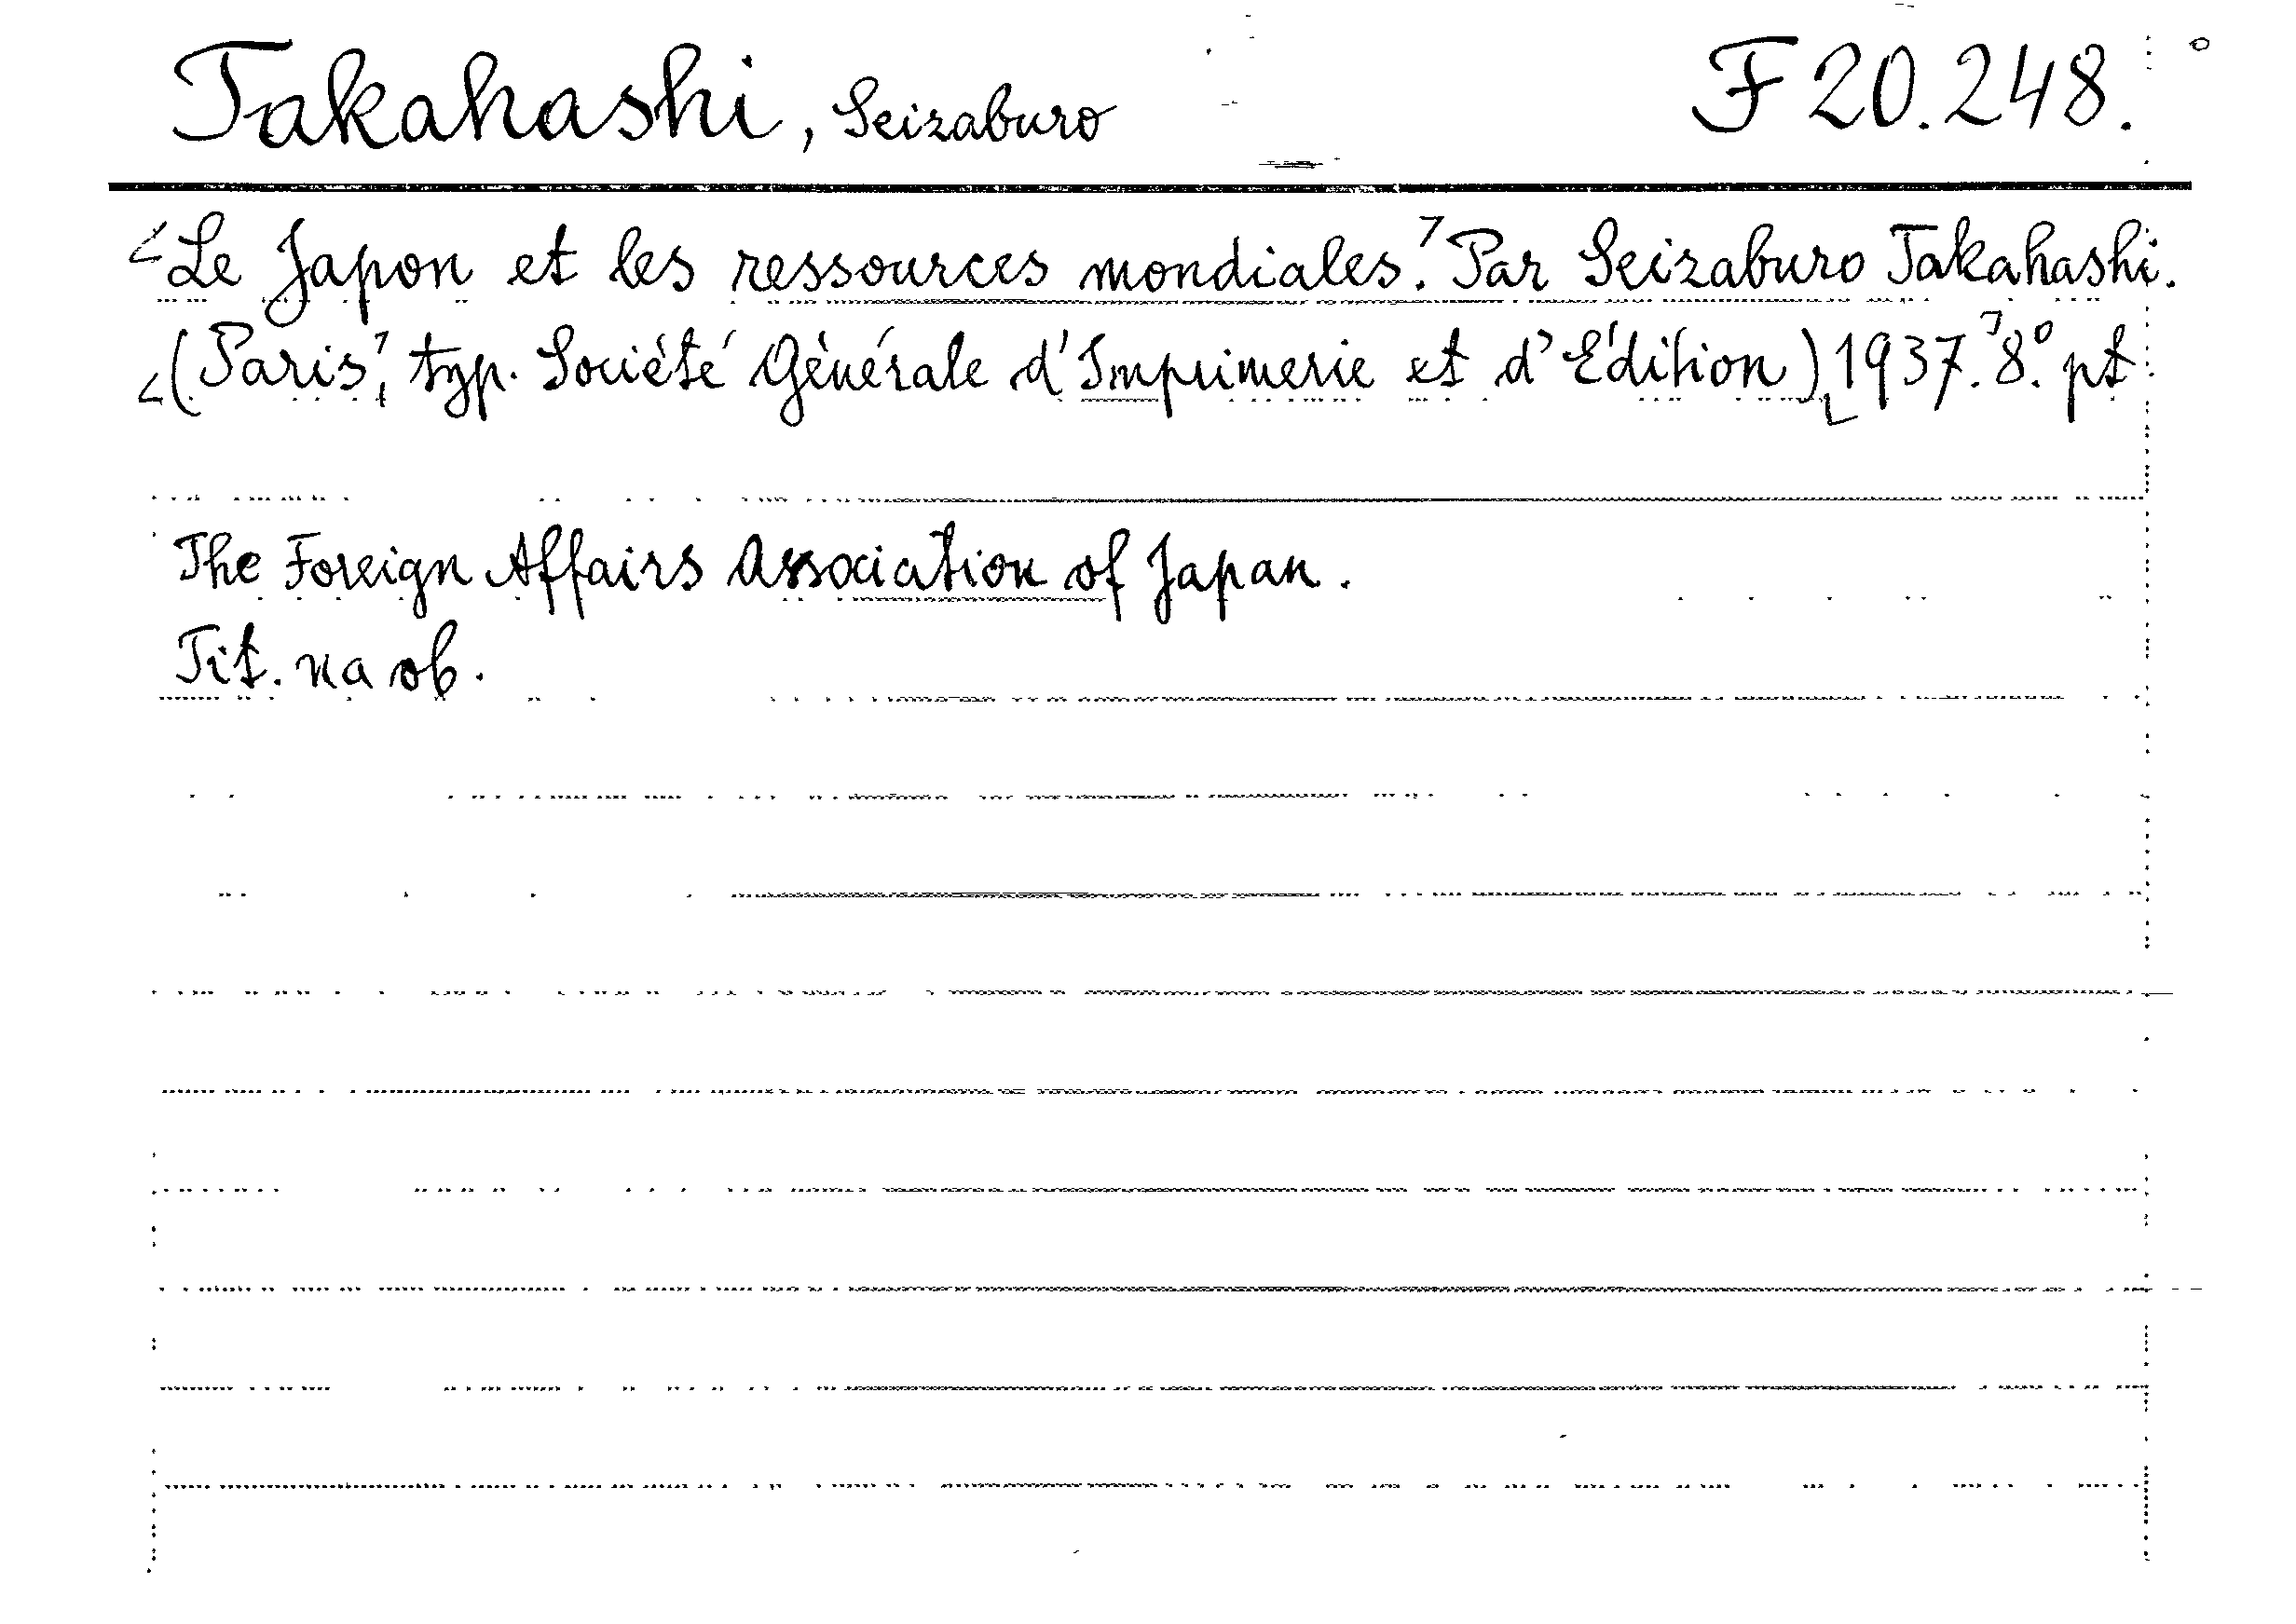 Takahashi, Seizaburo F 20.248.
Le Japon et les ressources mondiales. Par Seizaburo Takahashi.
(Paris, typ. Société Générale d'Imprimerie et d'Edition) 1937. 8° pt
The Foreign Affairs Association of Japan.
Tit. na ob.